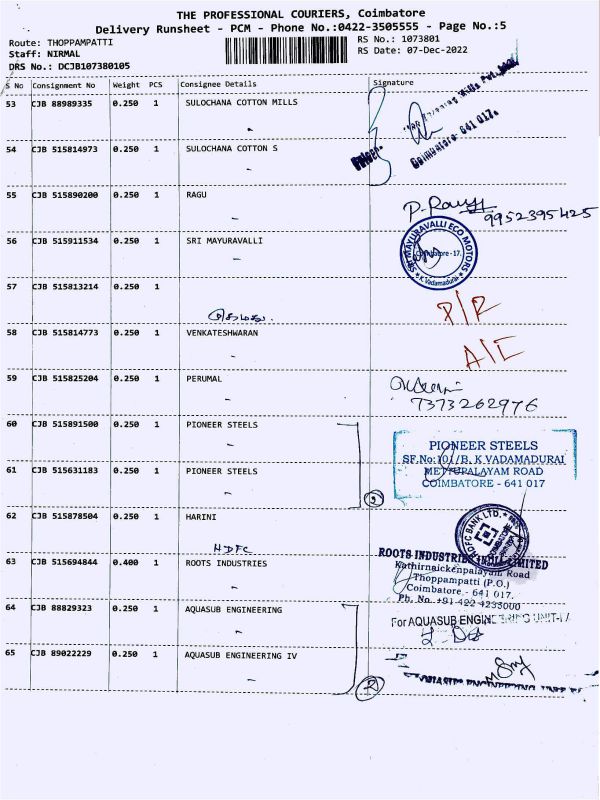 THE PROFESSIONAL COURIERS, Coimbatore
Delivery Runsheet - PCM - Phone No.:0422-3505555 - Page No.:5
Route: THOPPAMPATTI RS No.: 1073801
Staff: NIRMAL RS Date: 07-Dec-2022
DRS No.: DCJB107380105
S No Consignment No Weight PCS Consignee Details Signature
53 CJB 88989335 0.250 1 SULOCHANA COTTON MILLS
Coimbatore- 641 017.
54 CJB 515814973 0.250 1 SULOCHANA COTTON S
55 CJB 515890200 0.250 1 RAGU
9952395425
56 CJB 515911534 0.250 1 SRI MAYURAVALLI
SRI MAYURAVALLI ECO MOTORS
Coimbatore-17.
K.Vadamadurai
57 CJB 515813214 0.250 1
P/R
58 CJB 515814773 0.250 1 VENKATESHWARAN
A/C
59 CJB 515825204 0.250 1 PERUMAL
7373262976
60 CJB 515891500 0.250 1 PIONEER STEELS
PIONEER STEELS
SF.No:101/B, K VADAMADURAI
METTUPALAYAM ROAD
COIMBATORE - 641 017
61 CJB 515631183 0.250 1 PIONEER STEELS
62 CJB 515878504 0.250 1 HARINI
HDFC
HDFC BANK LTD.
63 CJB 515694844 0.400 1 ROOTS INDUSTRIES
ROOTS INDUSTRIES INDIA LIMITED
Kathirnaickenpalayam Road
Thoppampatti (P.O.)
Coimbatore - 641 017.
Ph. No. +91 422 4233000
64 CJB 88829323 0.250 1 AQUASUB ENGINEERING
For AQUASUB ENGINEERING UNIT-IV
65 CJB 89022229 0.250 1 AQUASUB ENGINEERING IV
2